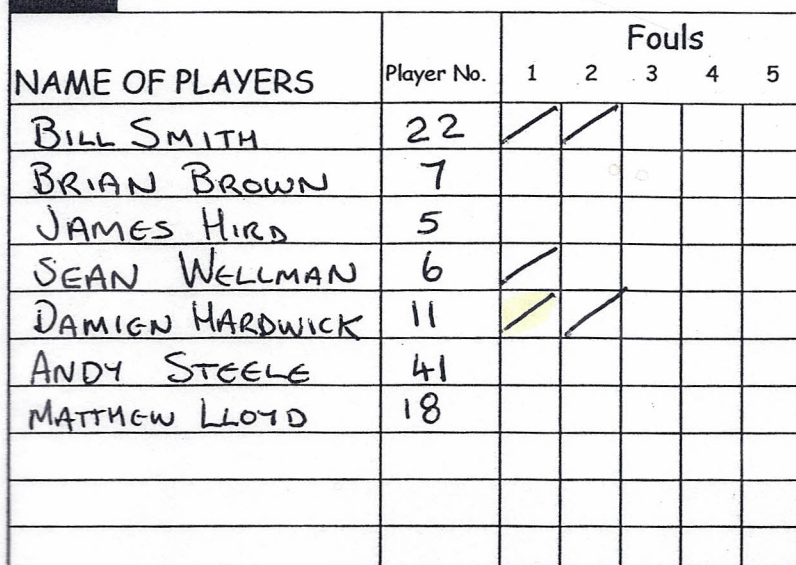 Fouls
NAME OF PLAYERS Player No. 1 2 3 4 5
BILL SMITH 22
BRIAN BROWN 7
JAMES HIRD 5
SEAN WELLMAN 6
DAMIEN HARDWICK 11
ANDY STEELE 41
MATTHEW LLOYD 18